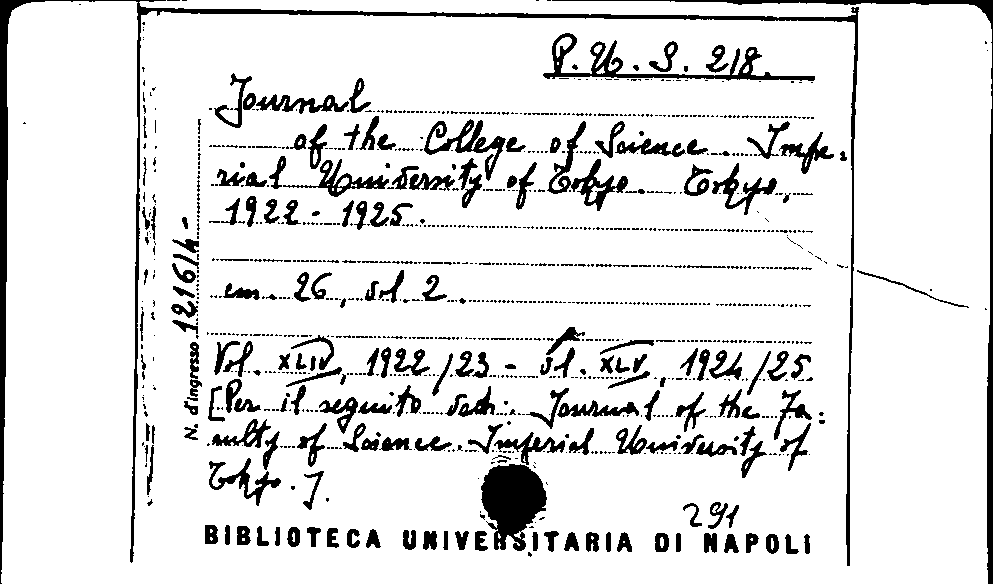 P. U. S. 218.
Journal
of the College of Science. Impe=
rial University of Tokyo. Tokyo,
1922 - 1925.
cm. 26, vol. 2.
Vol. XLIV, 1922/23 - Vol. XLV, 1924/25.
[Per il seguito ved.: Journal of the Fa=
culty of Science. Imperial University of
Tokyo.].
291
BIBLIOTECA UNIVERSITARIA DI NAPOLI
N. d'ingresso 12161/4-